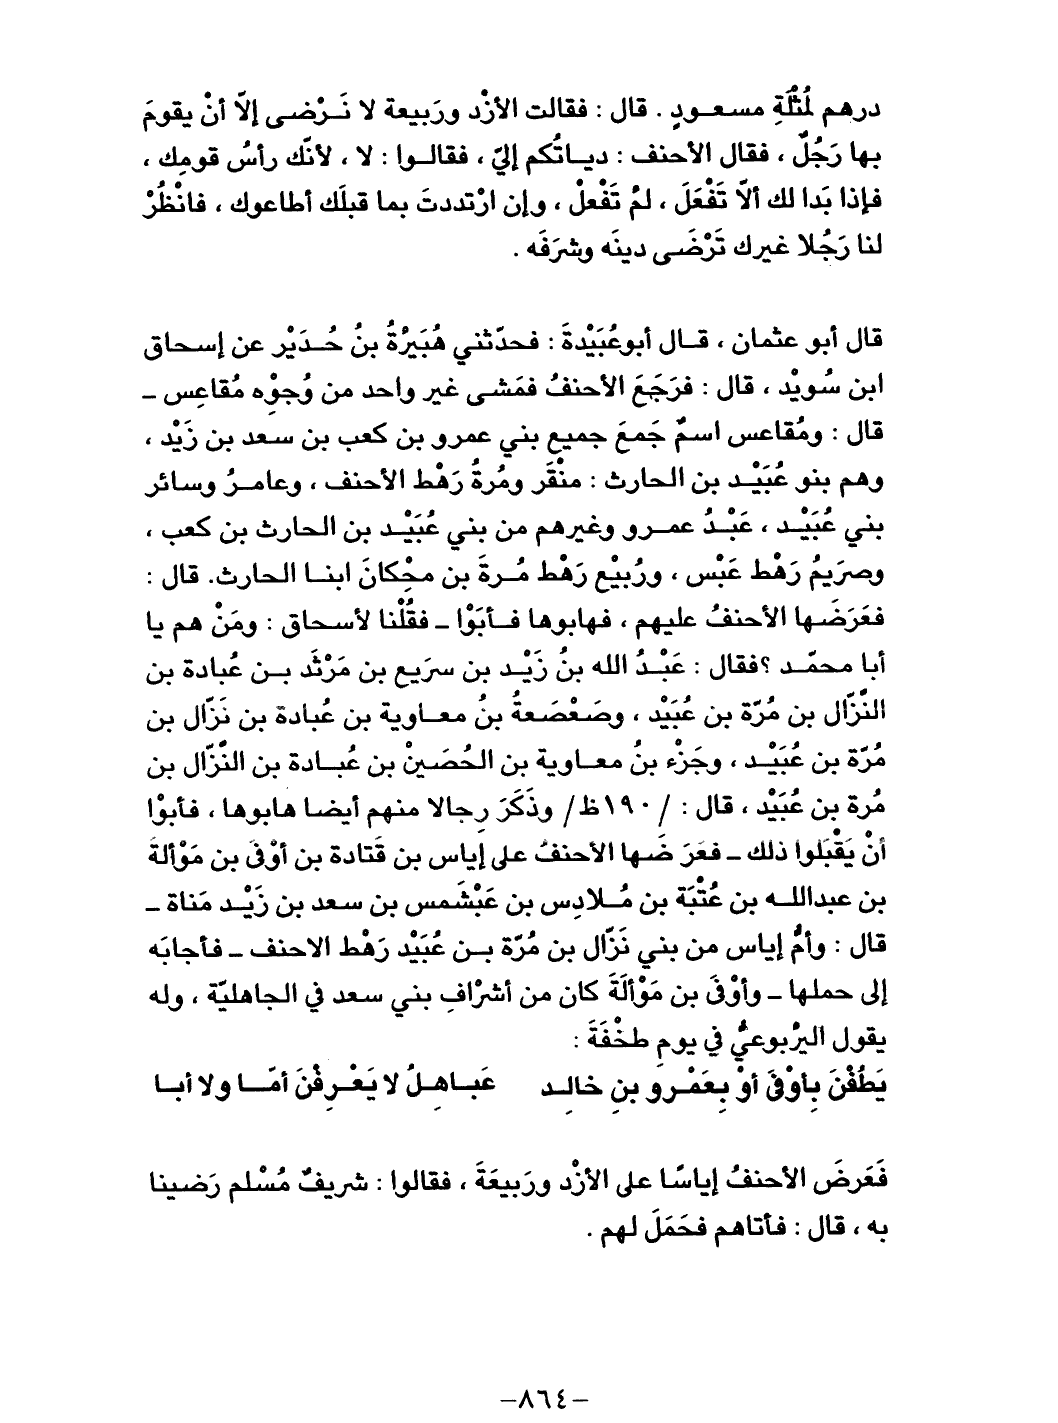 درهم لُمثْلَةِ مسعودٍ . قال : فقالت الأزْد ورَبيعة لا نَرْضى إلاّ أنْ يقومَ
بها رَجُلٌ ، فقال الأحنف : دياتُكم إليّ ، فقالوا : لا ، لأنّك رأسُ قومِك ،
فإذا بَدا لك ألاّ تَفْعَلَ ، لمْ تَفْعلْ ، وإن ارْتددتَ بما قبلَك أطاعوك ، فانْظُرْ
لنا رَجُلا غيرك تَرْضَى دينَه وشرَفَه .
قال أبو عثمان ، قال أبوعُبَيْدةَ : فحدّثني هُبَيْرْةُ بنُ حُدَيْر عن إسحاق
ابن سُويْد ، قال : فرَجَعَ الأحنفُ فمَشى غير واحد من وُجوْه مُقاعِس ـ
قال : ومُقاعس اسمٌ جَمعَ جميع بني عمرو بن كعب بن سعد بن زَيْد ،
وهم بنو عُبَيْد بن الحارث : منْقَر ومُرةُ رَهْط الأحنف ، وعامرُ وسائر
بني عُبَيْد ، عَبْدُ عمرو وغيرهم من بني عُبَيْد بن الحارث بن كعب ،
وصرَيمُ رَهْط عَبْس ، ورُبيْع رَهْط مُرةَ بن محْكانَ ابنا الحارث. قال :
فعَرَضَها الأحنفُ عليهم ، فهابوها فأبَوْا ـ فقُلْنا لأسحاق : ومَنْ هم يا
أبا محمّد ؟فقال : عَبْدُ الله بنُ زَيْد بن سريَع بن مَرْثَد بن عُبادة بن
النَّزّال بن مُرّة بن عُبَيْد ، وصَعْصَعةُ بنُ معاوية بن عُبادة بن نَزّال بن
مُرّة بن عُبَيْد ، وجَزْء بنُ معاوية بن الحُصَينْ بن عُبادة بن النَّزّال بن
مُرة بن عُبَيْد ، قال : /١٩٠ظ/ وذَكَرَ رِجالا منهم أيضا هابوها ، فأبوْا
أنْ يَقْبَلوا ذلك ـ فعَرَ ضَها الأحنفُ على إياس بن قَتادة بن أوْفى بن مَوْألةَ
بن عبدالله بن عُتْبَة بن مُلادِس بن عَبْشَمس بن سعد بن زَيْد مَناة ـ
قال : وأمُّ إياس من بني نَزّال بن مُرّة بن عُبَيْد رَهْط الاحنف ـ فأجابَه
إلى حملها ـ وأوْفى بن مَوْألَةَ كان من أشرْافِ بني سعد في الجاهليّة ، وله
يقول اليرْبوعيُّ في يومِ طخْفَةَ :
يَطُفْنَ بِأوْفى أوْ بِعَمْرو بنِ خالِد عَباهِلُ لا يَعْرِفْنَ أمّا ولا أبا
فَعَرضَ الأحنفُ إياسًا على الأزْد ورَبيعَةَ ، فقالوا : شريفٌ مُسْلم رَضينا
به ، قال : فأتاهم فحَمَلَ لهم .
–٨٦٤–